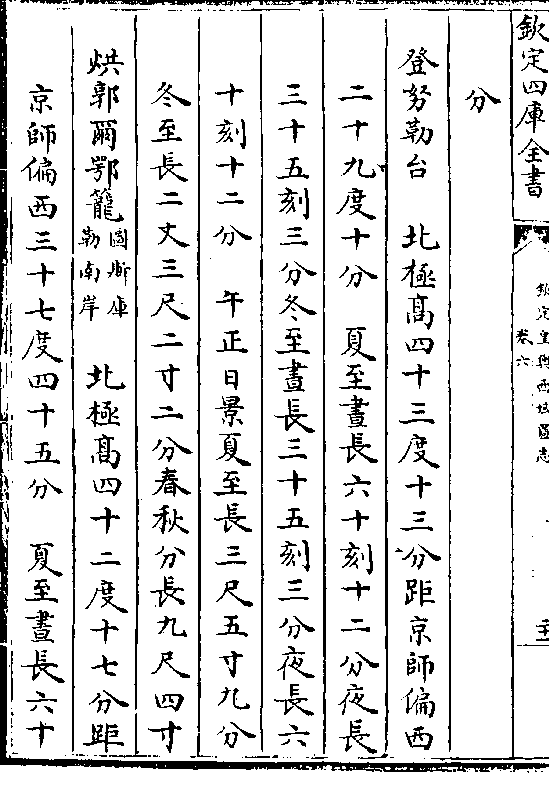 欽定四庫全書
欽定皇輿西域圖志
卷六
分
登努勒台　北極高四十三度十三分距京師偏西
二十九度十分　夏至晝長六十刻十二分夜長
三十五刻三分冬至晝長三十五刻三分夜長六
十刻十二分　午正日景夏至長三尺五寸九分
冬至長二丈三尺二寸二分春秋分長九尺四寸
烘郭爾鄂籠圖斯庫勒南岸　北極高四十二度十七分距
京師偏西三十七度四十五分　夏至晝長六十